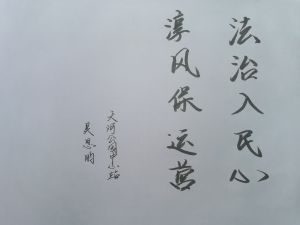 法治入民心
淳风保运营
天河公园中心站
吴恩昀